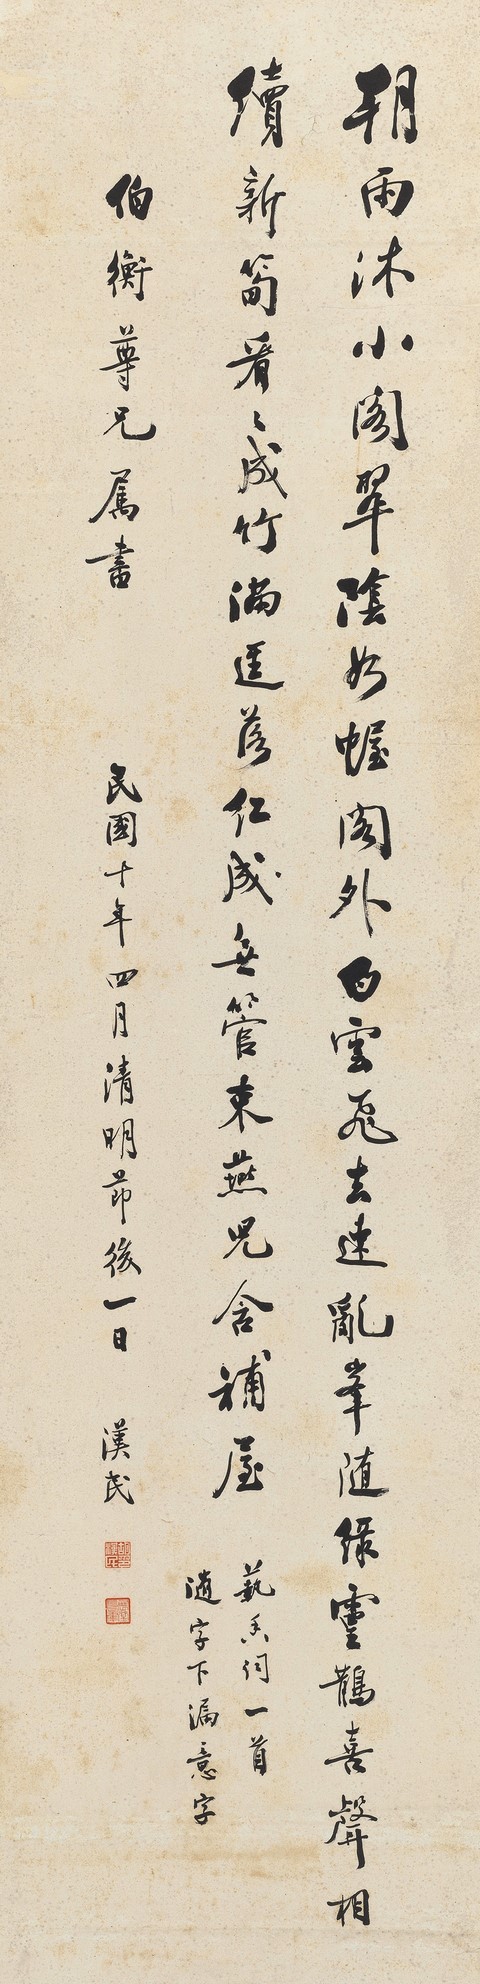 朝雨沐小閣翠陰如幄閣外白雲飛去速亂峯随綠靈鵲喜聲相
續新筍看〻成竹滿逕落紅成無管束燕兒含補屋
藝香詞一首
隨字下漏意字
伯衡尊兄屬書
民國十年四月清明節後一日
漢民